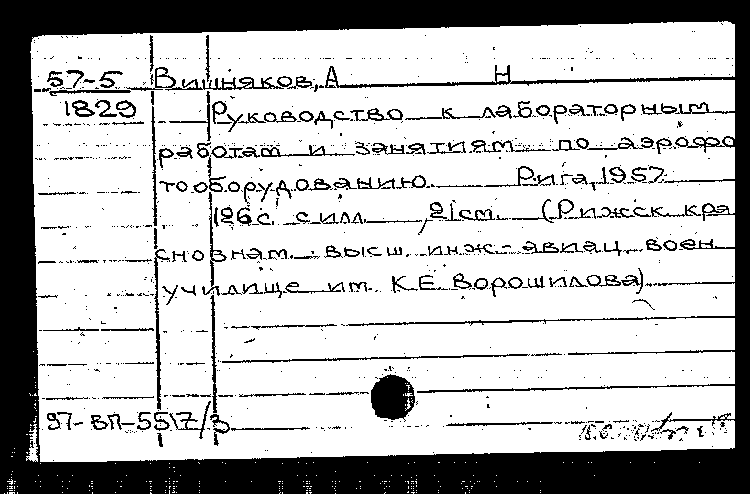 57-5 Вишняков, А Н
1829 Руководство к лабораторным
работам и занятиям по аэрофо
тооборудованию Рига, 1957
126 с. с илл. , 21 см. (Рижск. кра
снознам. высш. инж.-авиац. воен.
училище им. К.Е. Ворошилова)
97-ВП-5517/3